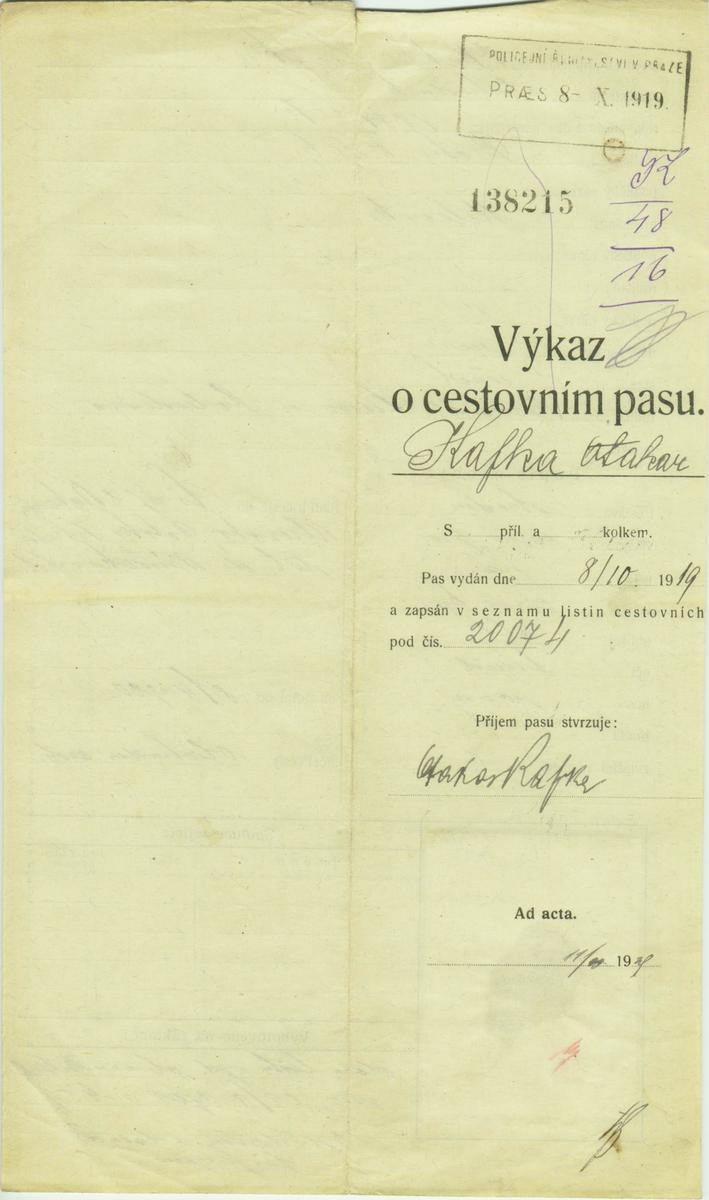 POLICEJNÍ ŘEDITELSTVÍ V PRAZE
PRÆS 8- X. 1919.
138215
K
48
16
Výkaz
o cestovním pasu.
Kafka Otakar
S příl. a kolkem.
Pas vydán dne 8/10. 1919
a zapsán v seznamu listin cestovních
pod čís. 20074
Příjem pasu stvrzuje:
Otakar Kafka
Ad acta.
19